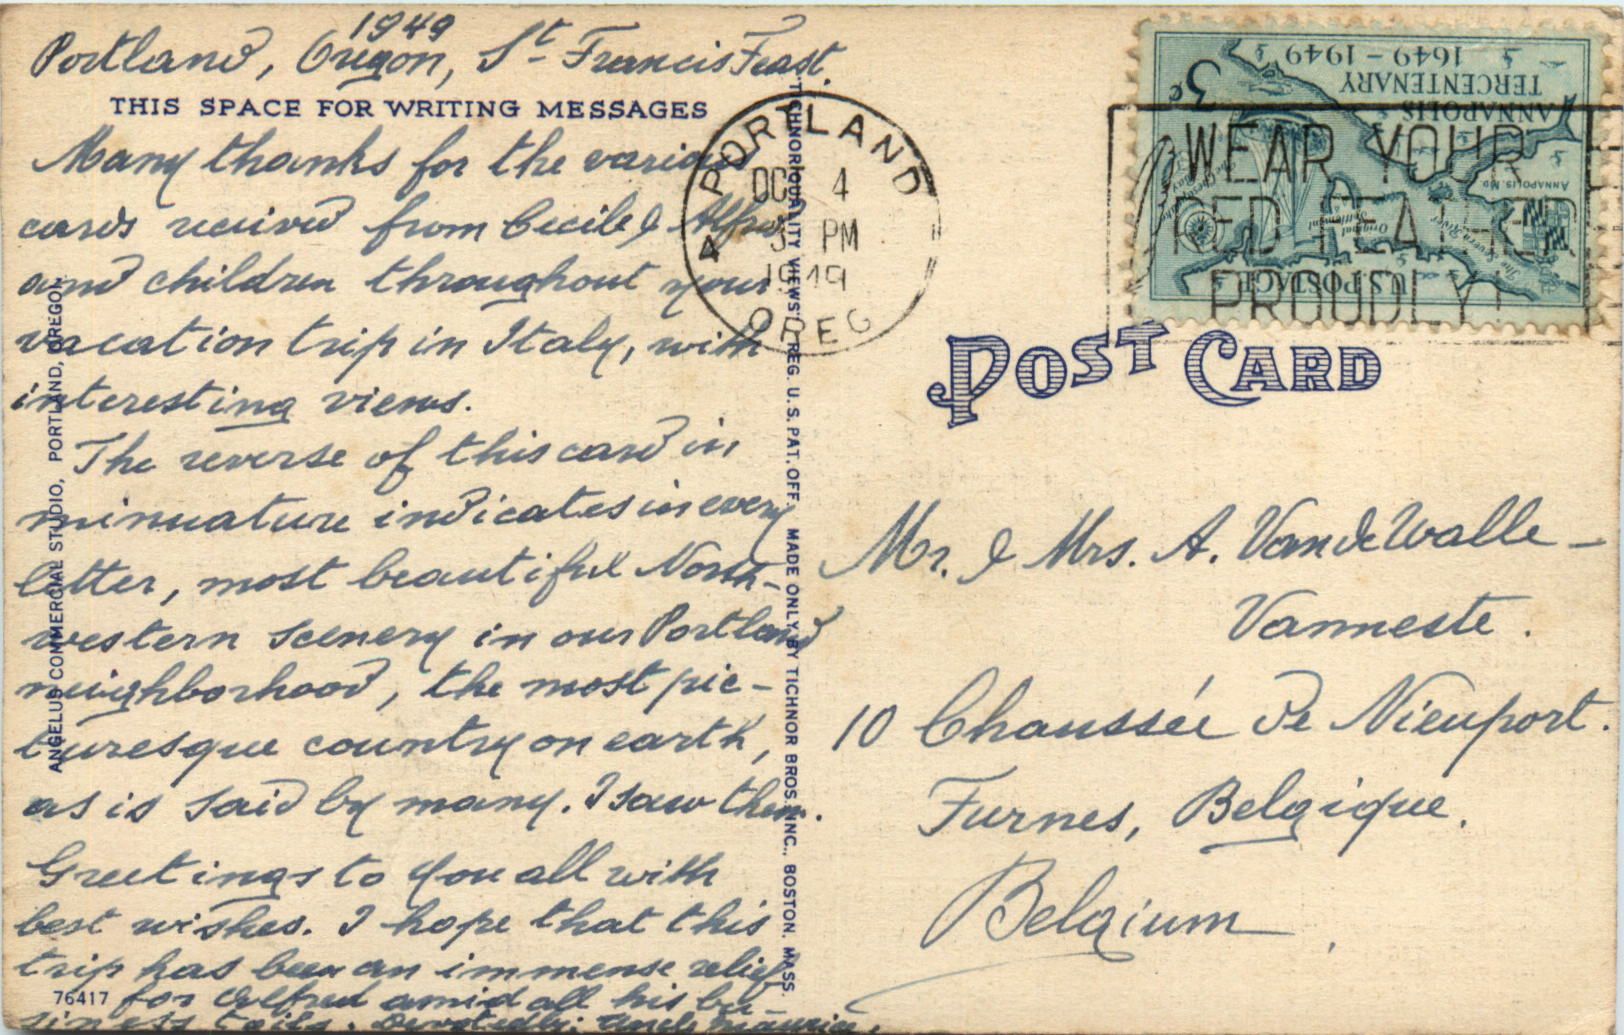 1949
Portland, Oregon, St Francis Feast.
THIS SPACE FOR WRITING MESSAGES
Many thanks for the various
cards received from Cecile & Alfred
and children throughout your
vacation trip in Italy, with
interesting views.
The reverse of this card in
minuature indicates in every
letter, most beautiful North-
western scenery in our Portland
neighborhood, the most pic-
turesque country on earth,
as is said by many. I saw them.
Greetings to you all with
best wishes. I hope that this
trip has been an immense relief
for Alfred amid all his bu-
siness toils. Devotedly: Uncle Maurice.
76417
ANGELUS COMMERCIAL STUDIO, PORTLAND, OREGON.
"TICHNOR QUALITY VIEWS," REG. U. S. PAT. OFF. MADE ONLY BY TICHNOR BROS., INC., BOSTON, MASS.
PORTLAND
OCT 4
3 PM
1949
OREG
4
WEAR YOUR
RED FEATHER
PROUDLY!
3¢
1649-1949
ANNAPOLIS
TERCENTENARY
U.S. POSTAGE
ANNAPOLIS, MD
Original
Settlement
POST CARD
Mr. & Mrs. A. Van de Walle -
Vanneste.
10 Chaussée de Nieuport.
Furnes, Belgique.
Belgium